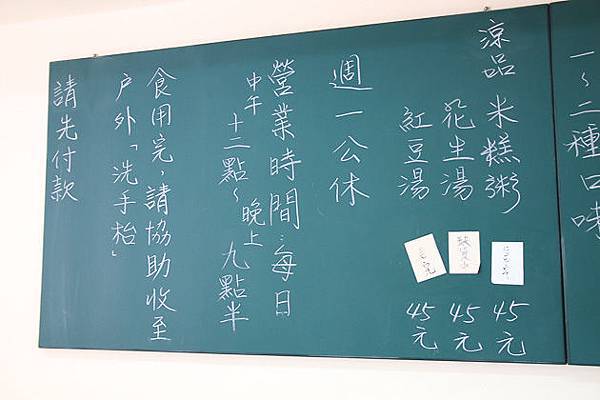 一~二種口味
涼品
米糕粥 45元
花生湯 45元
紅豆湯 45元
週一公休
營業時間:每日
中午十二點~晚上九點半
食用完,請協助收至
戶外「洗手枱」
請先付款